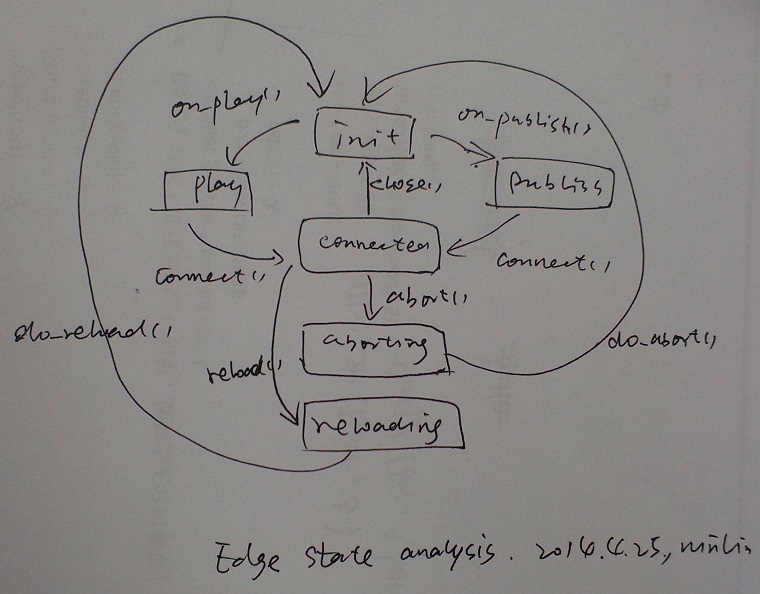 on_play()
init
on_publish()
play
close()
publish
connected
connect()
connect()
abort()
do_reload()
aborting
do_abort()
reload()
reloading
Edge state analysis. 2014.4.25, winlin